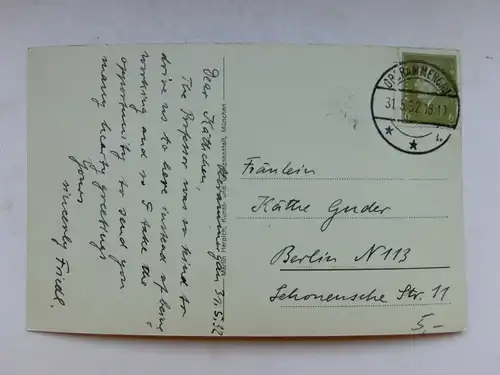 Oberammergau 31.5.32
Dear Käthchen,
The Professor was so kind to
drive us to here instead of being
working and so I take the
opportunity to send you
many hearty greetings
Yours
sincerely Friedl.
OBERAMMERGAU
31.5.32.18-19
Fräulein
Käthe Guder
Berlin N 113
Schonensche Str. 11
5,-